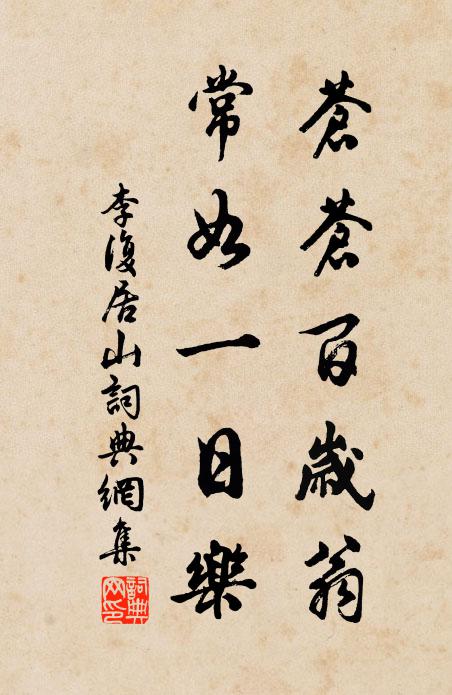 蒼蒼百歲翁
常如一日樂
李復居山詞典網集
詞典網印